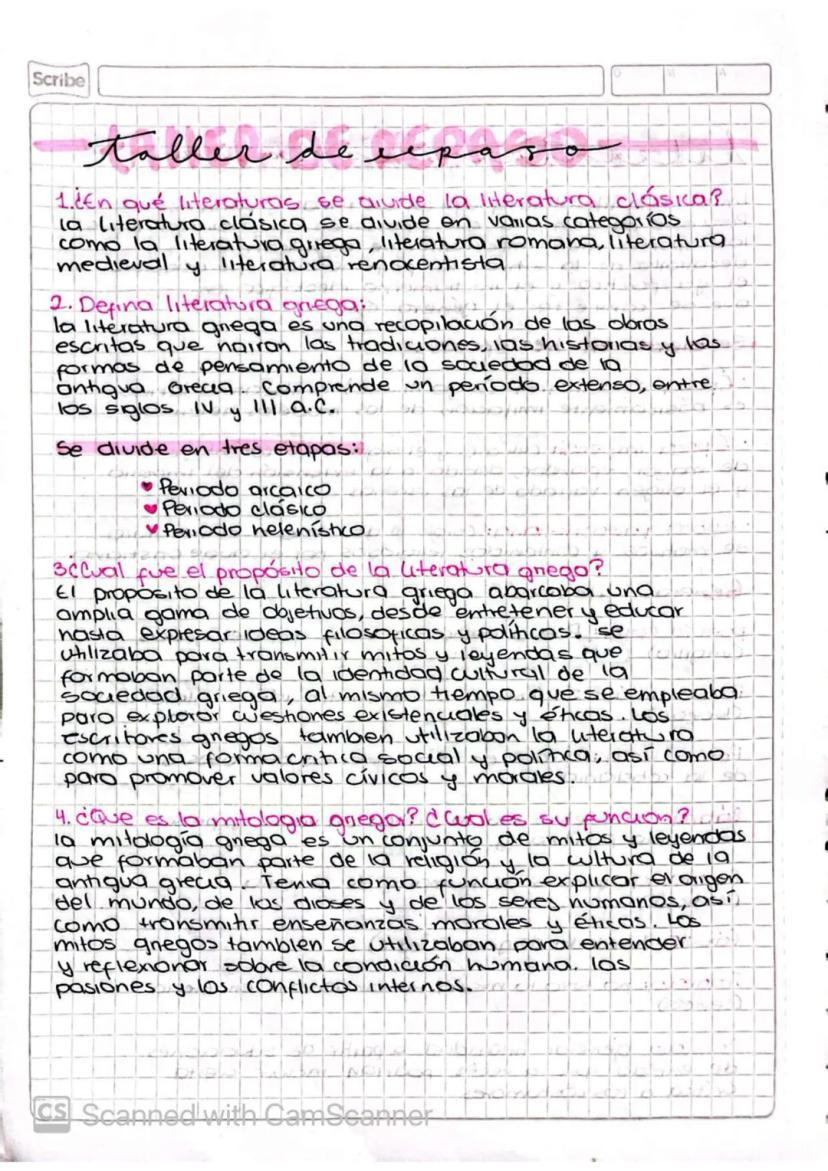 Scribe
taller de repaso
1.¿En qué literaturas se divide la literatura clásica?
la literatura clásica se divide en varias categorías
como la literatura griega, literatura romana, literatura
medieval y literatura renacentista
2. Defina literatura griega:
la literatura griega es una recopilación de las obras
escritas que narran las tradiciones, las historias y las
formas de pensamiento de la sociedad de la
antigua Grecia. Comprende un período extenso, entre
los siglos IV y III a.C.
Se divide en tres etapas:
Periodo arcaico
Periodo clásico
Periodo helenístico
3¿Cual fue el propósito de la literatura griega?
El proposito de la literatura griega abarcaba una
amplia gama de objetivos, desde entretener y educar
hasta expresar ideas filosoficas y políticas. se
utilizaba para transmitir mitos y leyendas que
formaban parte de la identidad cultural de la
sociedad griega, al mismo tiempo que se empleaba
para explorar cuestiones existenciales y éticas. Los
escritores griegos tambien utilizaban la literatura
como una forma critica social y política, así como
para promover valores cívicos y morales.
4. ¿Que es la mitologia griega? ¿Cual es su funcion?
la mitología griega es un conjunto de mitos y leyendas
que formaban parte de la religión y la cultura de la
antigua grecia. Tenia como función explicar el origen
del mundo, de los dioses y de los seres humanos, así
como transmitir enseñanzas morales y éticas. Los
mitos griegos tambien se utilizaban para entender
y reflexionar sobre la condición humana. las
pasiones y los conflictos internos.
CS Scanned with CamScanner